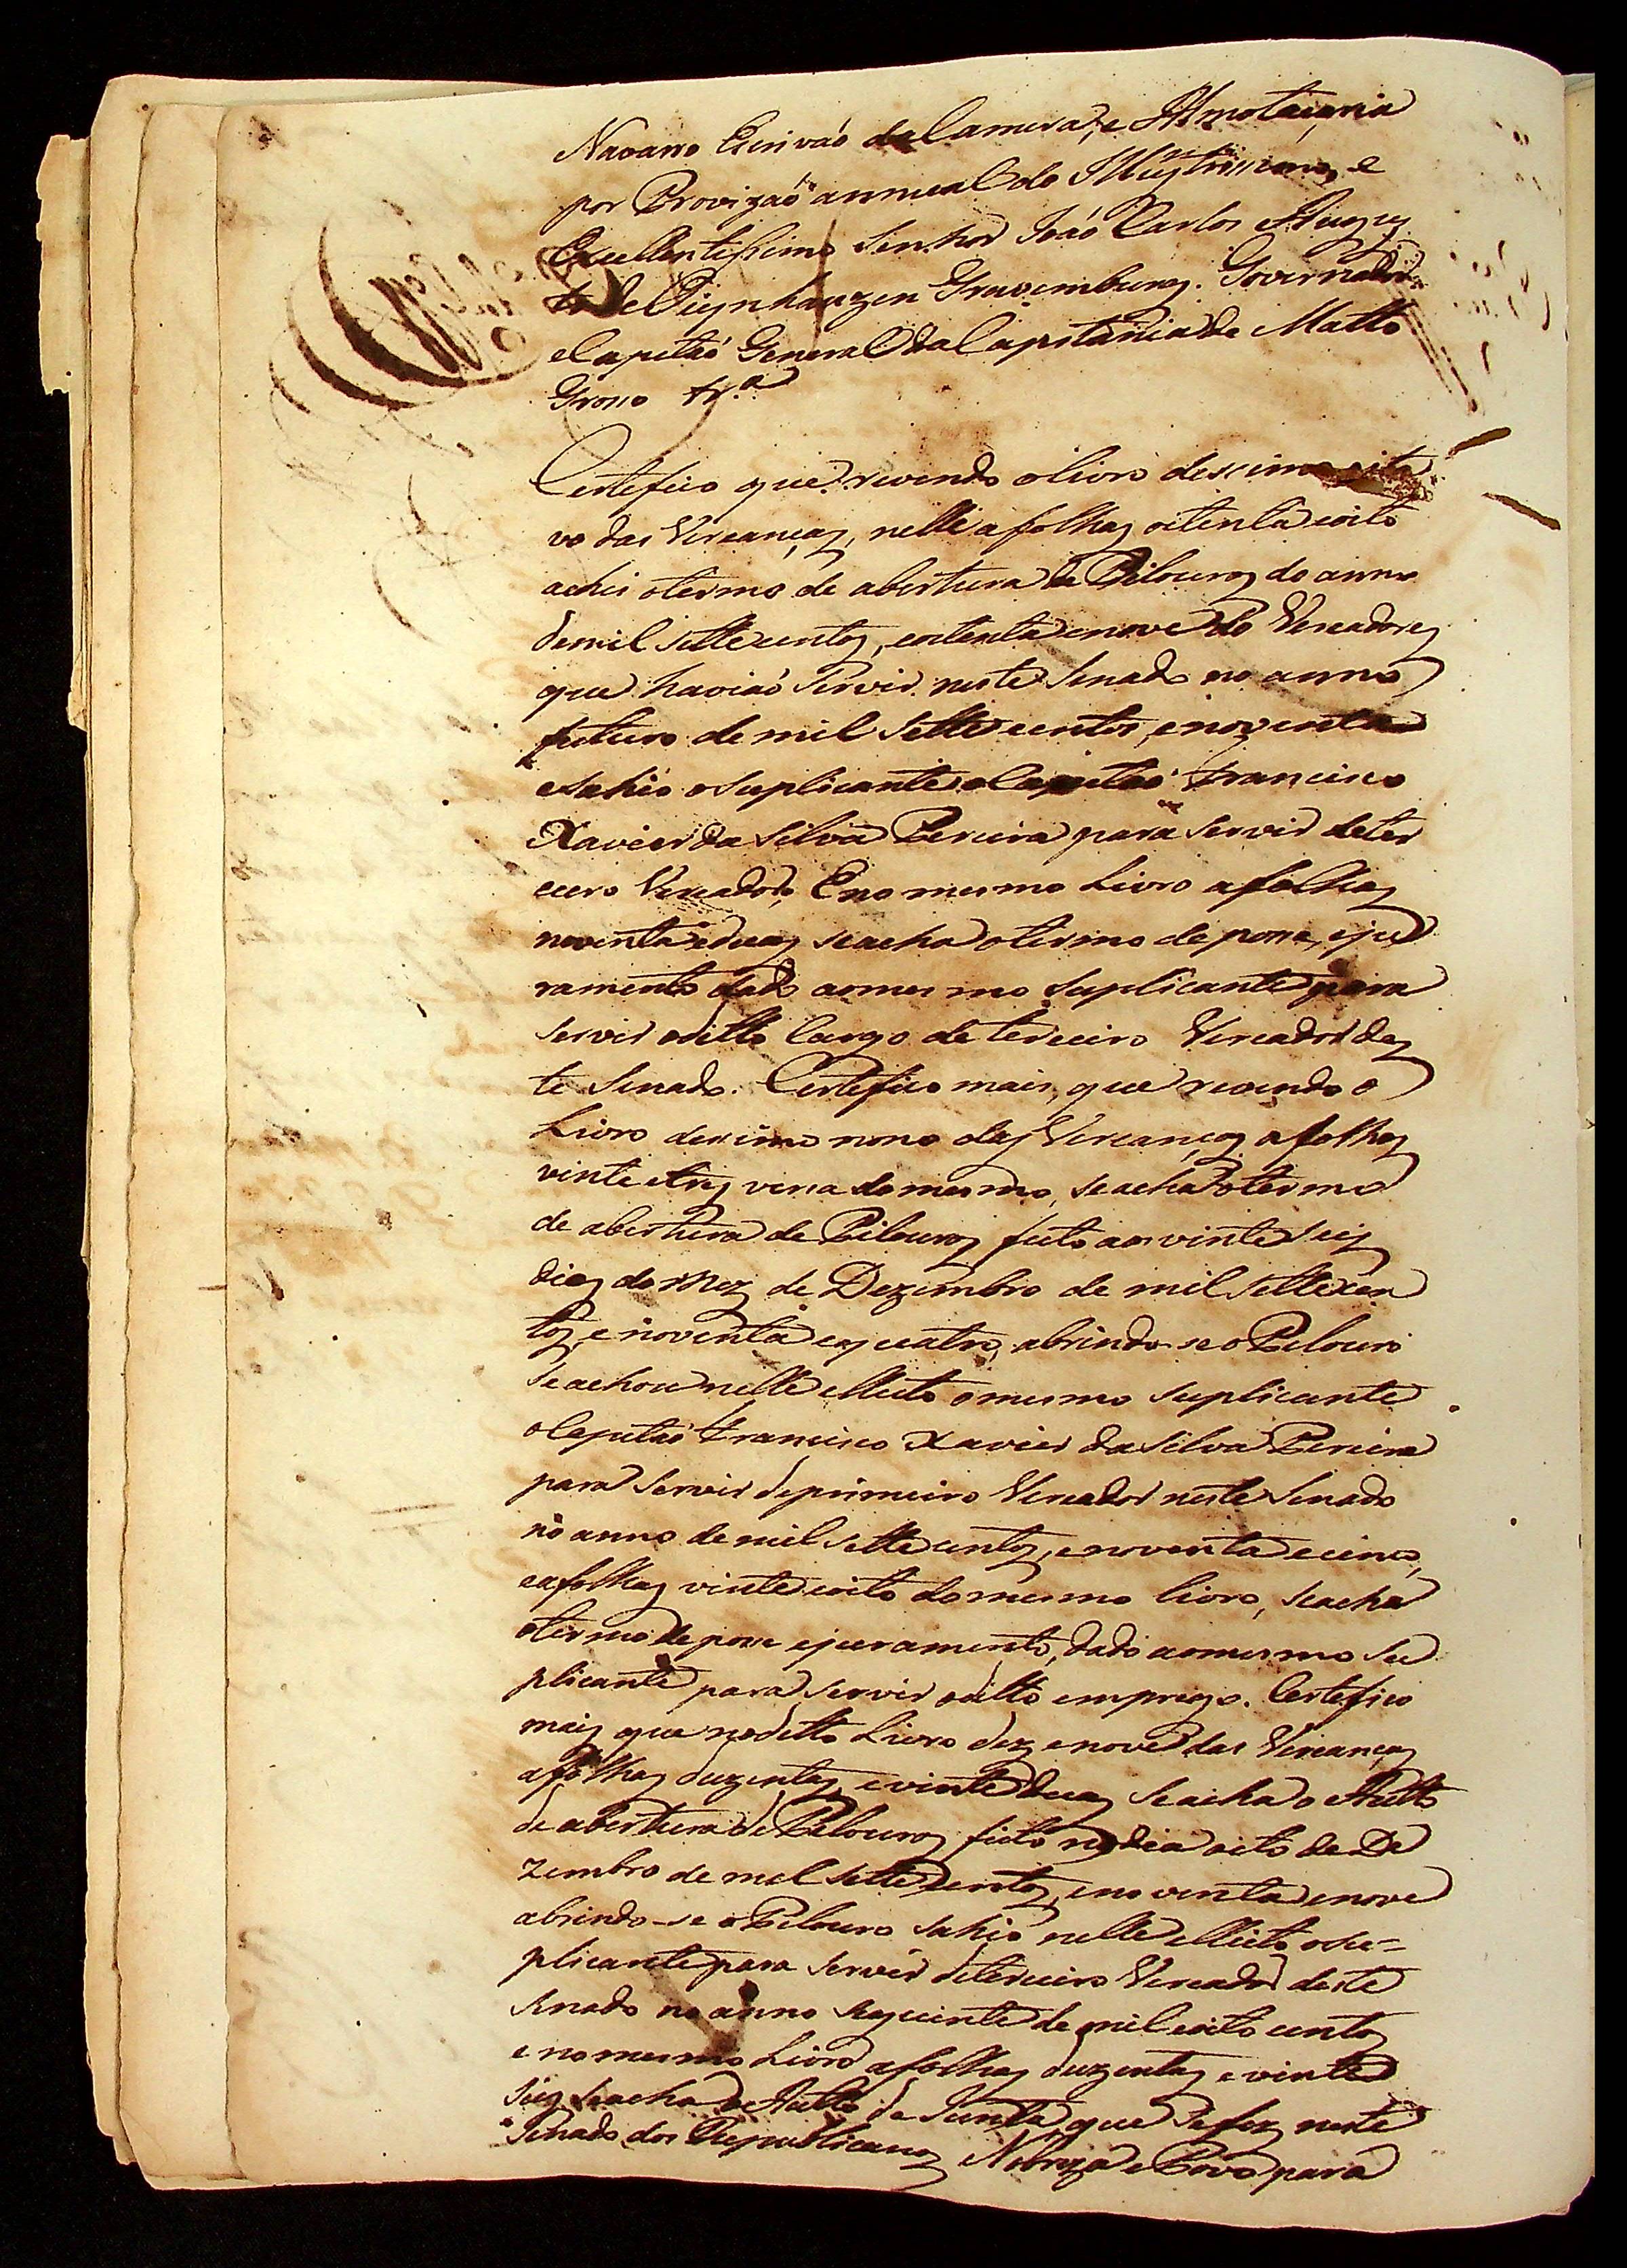 Navarro Escrivaõ da Camera, e Almotaçaria
por Provizaõ annual do Illustrissimo, e
Excellentissimo Senhor Joaõ Carlos Augus
to de Oeynhauzen Gravemburg. Governador
e Capitaõ General da Capitania de Matto
Grosso &.ª
Certefico que revendo o livro descimo oita
vo das Vereanças, nelle a folhas oitenta e oito
achei o termo de abertura de Pilouros do anno
de mil sette centos, e oitenta e nove dos Vereadores
que haviaõ servir neste Senado no anno
futuro de mil sette centos, e noventa
e sahio o Suplicante o Capitaõ Francisco
Xavier da Silva Pereira para servir de ter
ceiro Vereador. E no mesmo Livro a folhas
noventa e duas se acha o termo de posse, e ju
ramento dado ao mesmo Suplicante para
servir o ditto Cargo de terceiro Vereador des
te Senado. Certefico mais, que revendo o
Livro descimo nono das Vereanças a folhas
vinte e tres verso do mesmo, se acha o termo
de abertura de Pilouros feito aos vinte seis
dias do Mez de Dezembro de mil sette cen
tos, e noventa e quatro, abrindo-se o Pelouro
se achou nelle elleito o mesmo Suplicante
o Capitaõ Francisco Xavier da Silva Pereira
para servir de primeiro Vereador neste Senado
no anno de mil sette centos, e noventa e cinco,
e a folhas vinte e oito do mesmo livro, se acha
o termo de posse e juramento, dado ao mesmo Su
plicante para servir o ditto emprego. Certefico
mais que no ditto Livro dez e nove das Vereanças
a folhas duzentas, e vinte e duas se acha o Autto
de abertura de Pelouros feito no dia oito de De
zembro de mil sette centos, e noventa e nove
abrindo-se o Pelouro sahio nelle elleito o Su-
plicante para servir de terceiro Vereador deste
Senado no anno seguinte de mil e oito centos
e no mesmo Livro a folhas duzentas e vinte
seis se acha o Autto de Junta, que se fez neste
Senado dos Republicanos Nobreza e Povo para